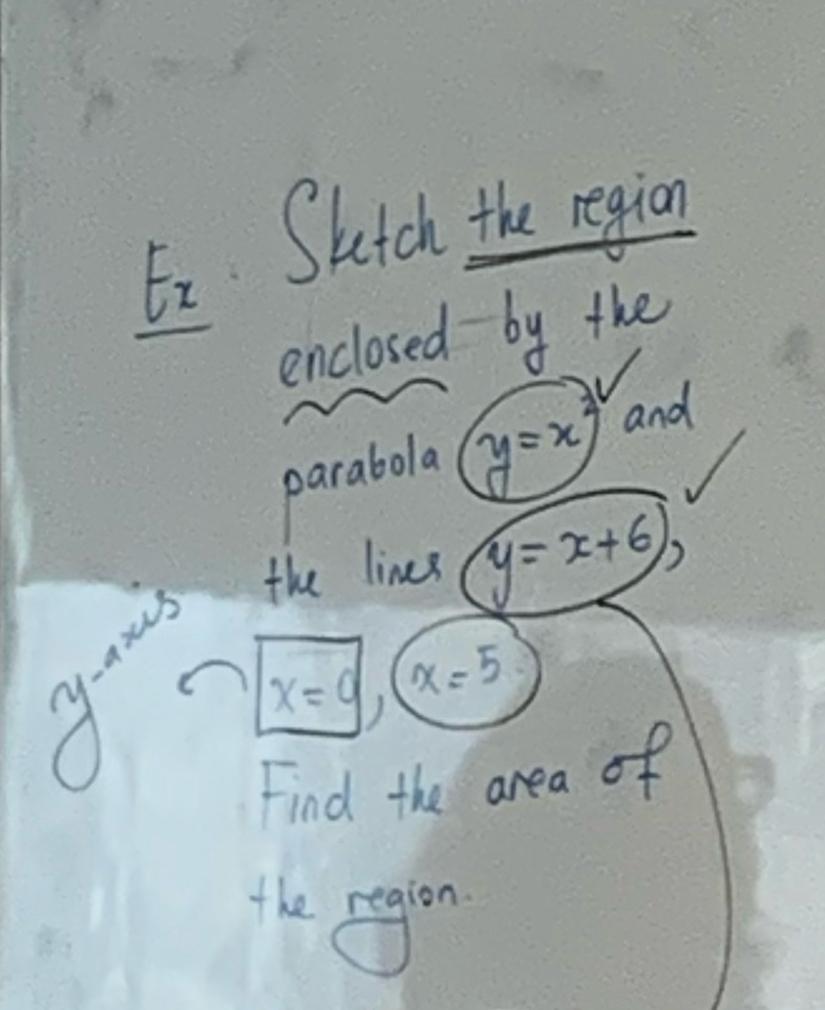 Ex. Sketch the region
enclosed by the
parabola y=x² and
the lines y=x+6,
y-axis x=0, x=5
Find the area of
the region.